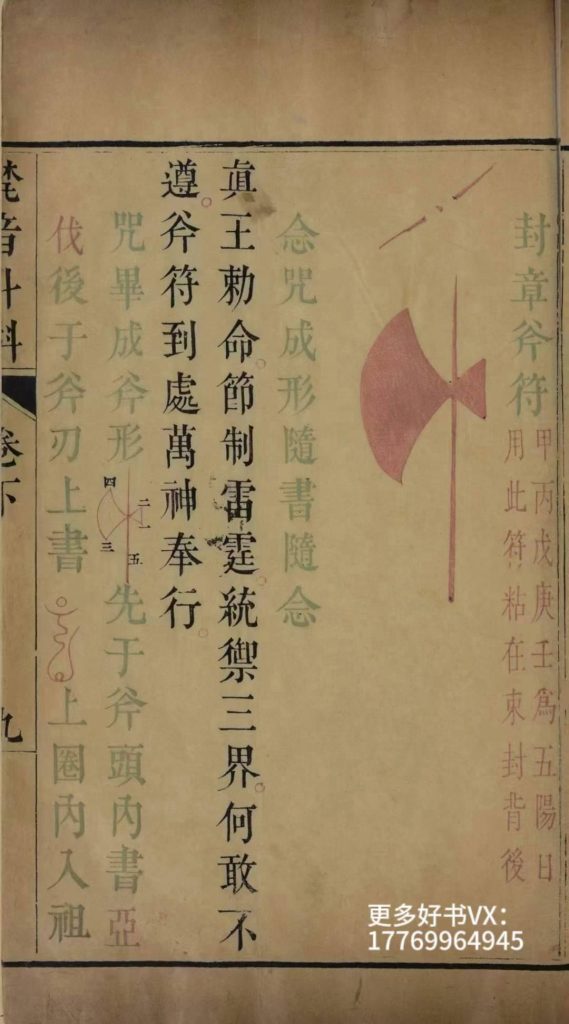 封章斧符
甲丙戊庚壬爲五陽日
用此符粘在東封背後
念咒成形隨書隨念
眞王勅命。節制雷霆。統禦三界。何敢不
遵。斧符到處萬神奉行。
咒畢成斧形
四
三
二
一
五
先于斧頭內書亞
伐後于斧刃上書
上圈內入祖
音斗科
卷下
九
更多好书VX：
17769964945